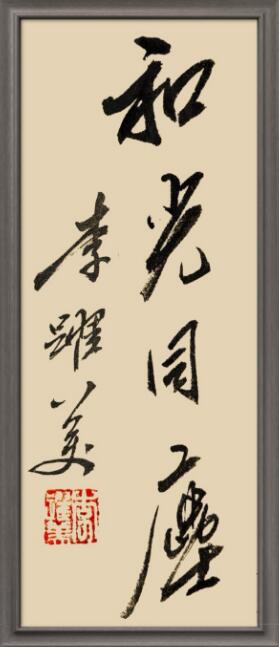 和光同塵
李躍美